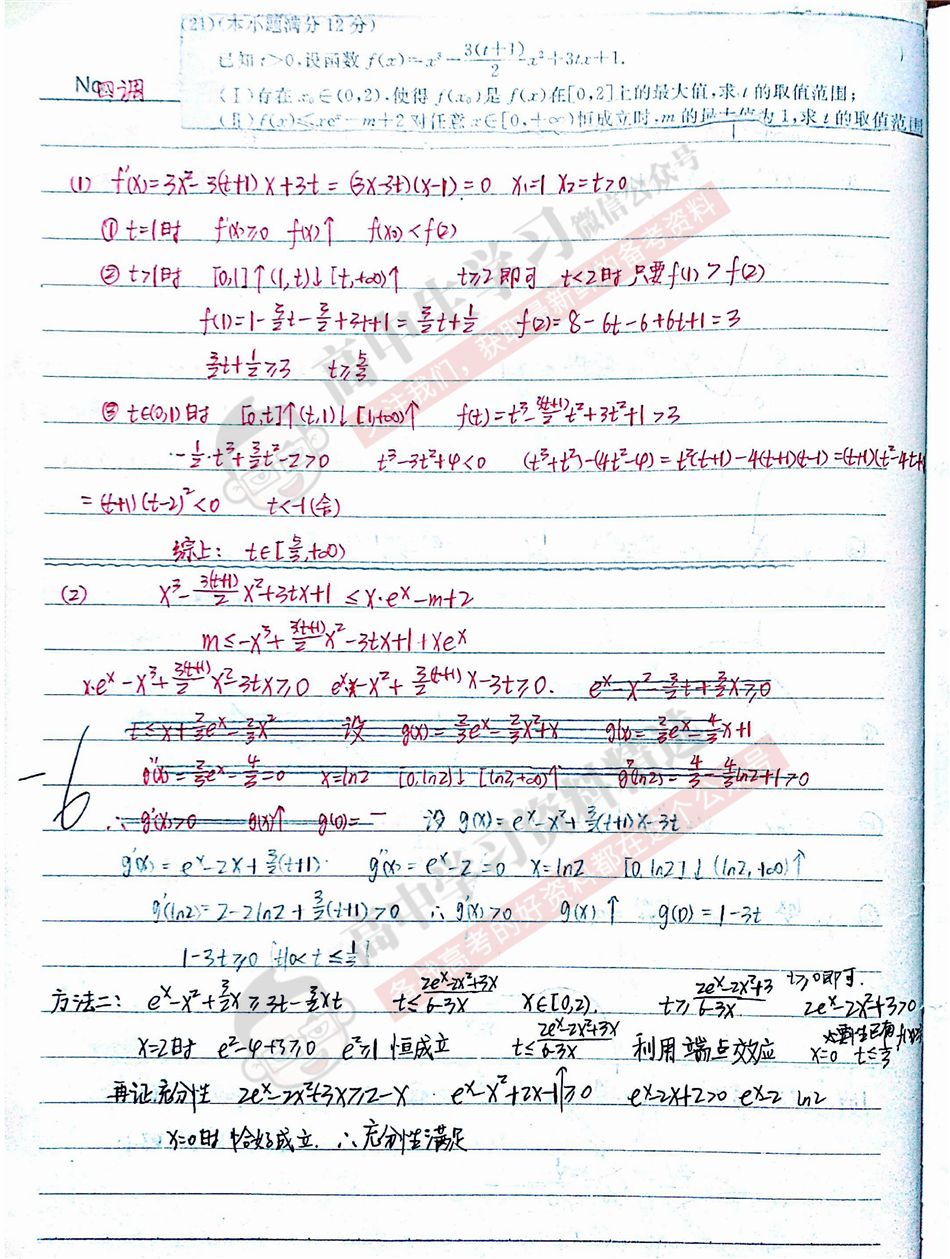 (21)(本小题满分12分)
已知t>0,设函数f(x)=x³-3(t+1)/2x²+3tx+1.
No 四调
(Ⅰ)存在x₀∈(0,2),使得f(x₀)是f(x)在[0,2]上的最大值,求t的取值范围;
(Ⅱ)f(x)≤xeˣ-m+2对任意x∈[0,+∞)恒成立时,m的最大值为1,求t的取值范围
(1) f'(x)=3x²-3(t+1)x+3t=(3x-3t)(x-1)=0 x₁=1 x₂=t>0
① t=1时 f'(x)≥0 f(x)↑ f(x₀)<f(2)
② t>1时 [0,1]↑(1,t)↓[t,+∞)↑ t≥2即可 t<2时 只要f(1)>f(2)
f(1)=1-3/2t-3/2+3t+1=3/2t+1/2 f(2)=8-6t-6+6t+1=3
3/2t+1/2≥3 t≥5/3
③ t∈(0,1)时 [0,t]↑(t,1)↓[1,+∞)↑ f(t)=t³-3(t+1)/2t²+3t²+1>3
-1/2·t³+3/2t²-2>0 t³-3t²+4<0 (t³+t²)-(4t²-4)=t²(t+1)-4(t+1)(t-1)=(t+1)(t²-4t+4
=(t+1)(t-2)²<0 t<-1(舍)
综上: t∈[5/3,+∞)
(2) x³-3(t+1)/2x²+3tx+1≤x·eˣ-m+2
m≤-x³+3(t+1)/2x²-3tx+1+xeˣ
x·eˣ-x³+3(t+1)/2x²-3tx≥0 eˣ-x²+3/2(t+1)x-3t≥0. eˣ-x²-3/2t+3/2x≥0
t≤x+2/3eˣ-2/3x² 设 g(x)=2/3eˣ-2/3x²+x g'(x)=2/3eˣ-4/3x+1
g''(x)=2/3eˣ-4/3=0 x=ln2 [0,ln2]↓ [ln2,+∞)↑ g'(ln2)=4/3-4/3ln2+1>0
∴g'(x)>0 g(x)↑ g(0)=- 设 g(x)=eˣ-x²+3/2(t+1)x-3t
-6
g'(x)=eˣ-2x+3/2(t+1) g''(x)=eˣ-2=0 x=ln2 [0,ln2]↓ (ln2,+∞)↑
g'(ln2)=2-2ln2+3/2(t+1)>0 ∴g'(x)>0 g(x)↑ g(0)=1-3t
1-3t≥0 {t|0<t≤1/3}
方法二: eˣ-x²+3/2x≥3t-3/2xt t≤2eˣ-2x²+3x/6-3x x∈[0,2) t≥2eˣ-2x²+3/6-3x t≥0即可. 2eˣ-2x²+3>0
x=2时 e²-4+3≥0 e²≥1 恒成立 t≤2eˣ-2x²+3x/6-3x 利用端点效应 x=0 t≤1/3
再证充分性 2eˣ-2x²+3x≥2-x eˣ-x²+2x-1↑≥0 eˣ-2x+2>0 eˣ-2 ln2
x=0时 恰好成立. ∴充分性满足
高中生学习 微信公众号
关注我们，获取最新的备考资料
高中学习资料精选
备战高考的好资料都在这个公众号